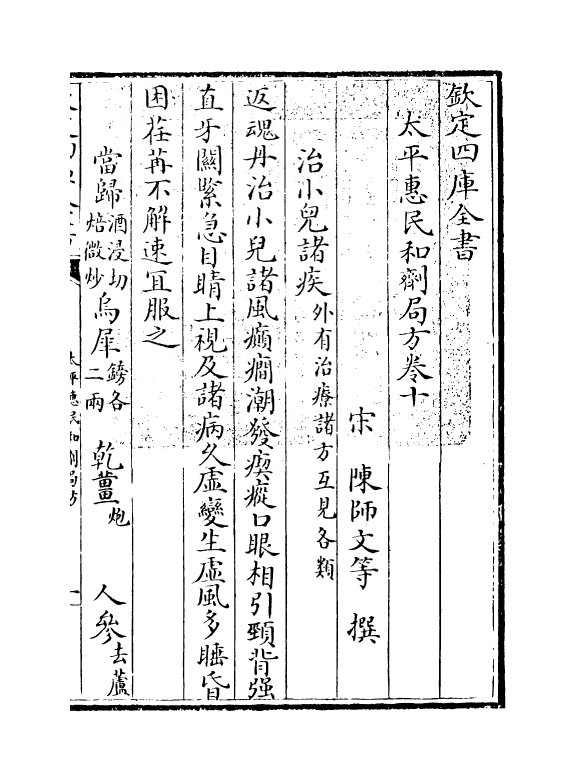 欽定四庫全書
太平惠民和劑局方卷十
宋 陳師文等 撰
治小兒諸疾外有治療諸方互見各類
返魂丹治小兒諸風癲癎潮發瘈瘲口眼相引頸背强
直牙關緊急目睛上視及諸病久虛變生虛風多睡昏
困荏苒不解速宜服之
當歸酒浸切焙微炒 烏犀鎊各二兩 乾薑炮 人參去蘆
太平惠民和劑局方
一